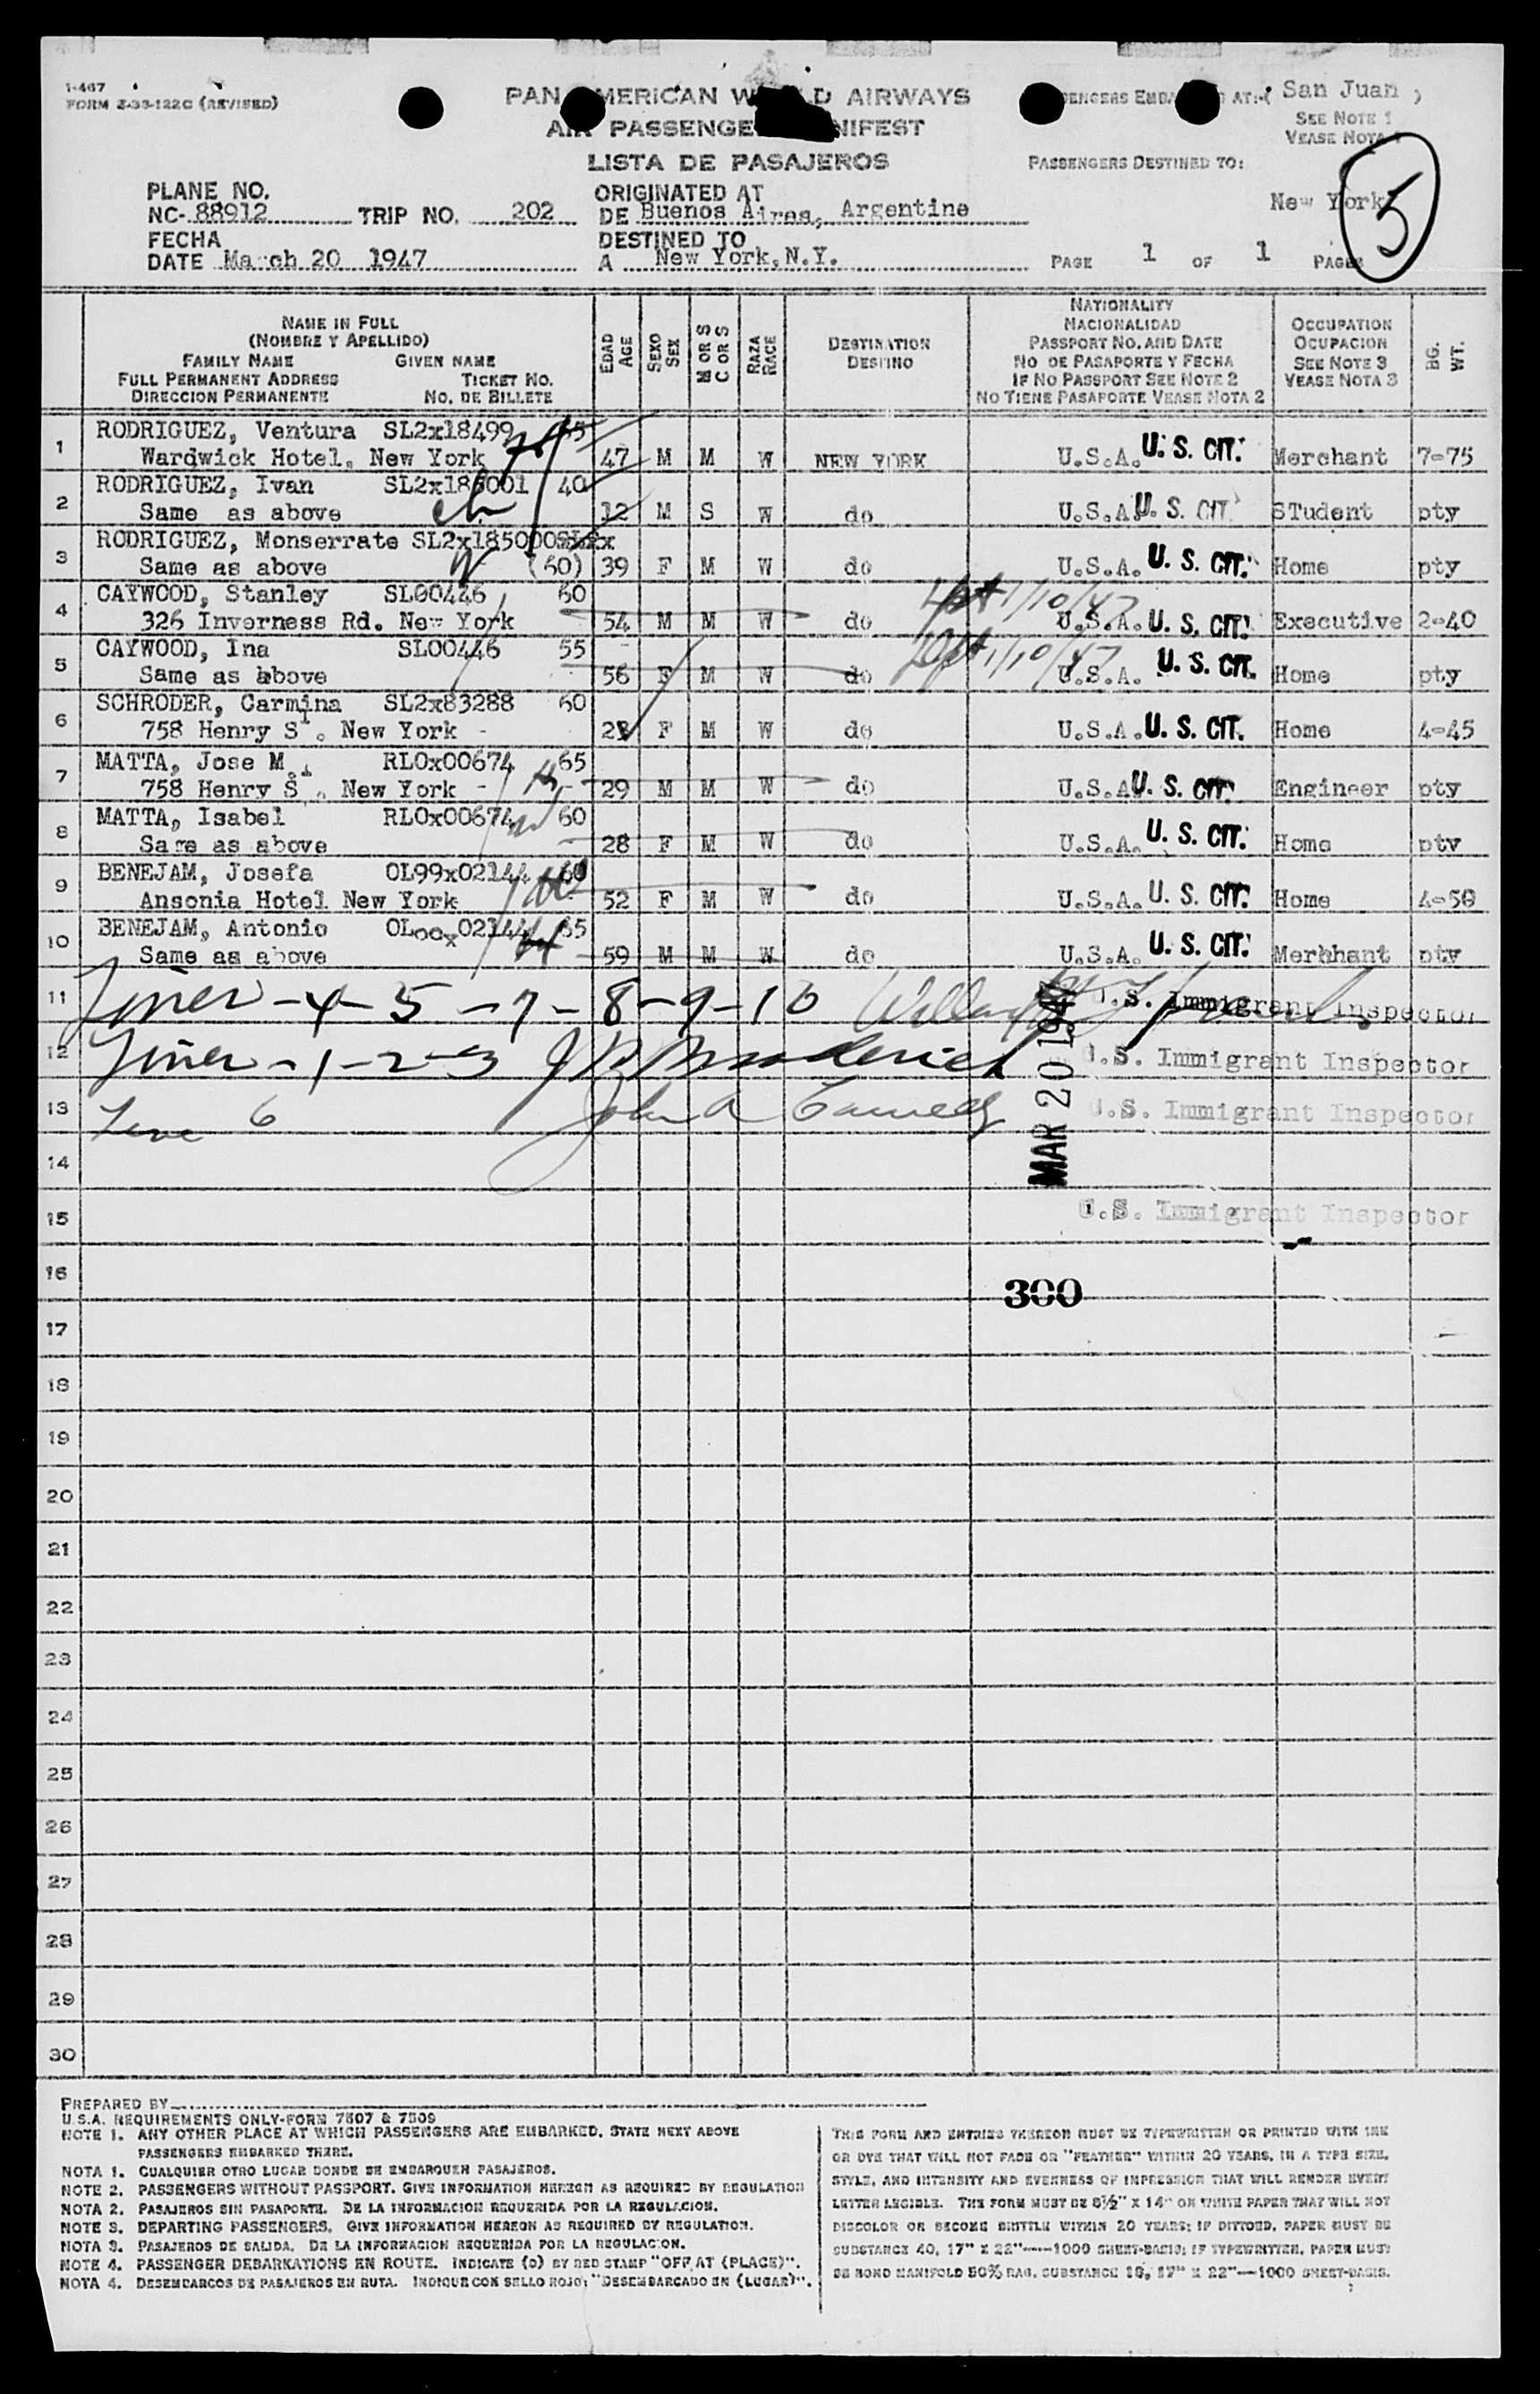 1-467
FORM 3-33-122C (REVISED)
PAN AMERICAN W LD AIRWAYS
AIR PASSENGE NIFEST
LISTA DE PASAJEROS
ENGERS EMBA AT:-( San Juan )
SEE NOTE 1
VEASE NOTA 1
PASSENGERS DESTINED TO:
New York
5
PLANE NO.
NC- 88912 TRIP NO. 202
ORIGINATED AT
DE Buenos Aires, Argentine
FECHA
DATE March 20 1947
DESTINED TO
A New York, N.Y.
PAGE 1 OF 1 PAGES
NAME IN FULL
(NOMBRE Y APELLIDO)
FAMILY NAME GIVEN NAME
FULL PERMANENT ADDRESS TICKET NO.
DIRECCION PERMANENTE NO. DE BILLETE
EDAD AGE
SEXO SEX
M OR S C OR S
RAZA RACE
DESTINATION
DESTINO
NATIONALITY
NACIONALIDAD
PASSPORT NO. AND DATE
NO DE PASAPORTE Y FECHA
IF NO PASSPORT SEE NOTE 2
NO TIENE PASAPORTE VEASE NOTA 2
OCCUPATION
OCUPACION
SEE NOTE 3
VEASE NOTA 3
BG. WT.
1 RODRIGUEZ, Ventura SL2x18499
Wardwick Hotel, New York 47 M M W NEW YORK U.S.A. U. S. CIT. Merchant 7-75
2 RODRIGUEZ, Ivan SL2x185001 40
Same as above 12 M S W do U.S.A. U. S. CIT. STudent pty
3 RODRIGUEZ, Monserrate SL2x185000
Same as above (60) 39 F M W do U.S.A. U. S. CIT. Home pty
4 CAYWOOD, Stanley SL00446 60
326 Inverness Rd. New York 54 M M W do 1/10/47 U.S.A. U. S. CIT. Executive 2-40
5 CAYWOOD, Ina SL00446 55
Same as above 56 F M W do 1/10/47 U.S.A. U. S. CIT. Home pty
6 SCHRODER, Carmina SL2x83288 60
758 Henry St. New York - F M W do U.S.A. U. S. CIT. Home 4-45
7 MATTA, Jose M. RL0x00674 65
758 Henry St. New York - 29 M M W do U.S.A. U. S. CIT. Engineer pty
8 MATTA, Isabel RL0x00674 60
Same as above 28 F M W do U.S.A. U. S. CIT. Home pty
9 BENEJAM, Josefa OL99x02144 60
Ansonia Hotel New York 52 F M W do U.S.A. U. S. CIT. Home 4-50
10 BENEJAM, Antonio 65
Same as above 59 M M W do U.S.A. U. S. CIT. Merhhant pty
11 Lines - 4 - 5 - 7 - 8 - 9 - 10 U.S. Immigrant Inspector
12 Lines - 1 - 2 - 3 U.S. Immigrant Inspector
13 Line 6 John A U.S. Immigrant Inspector
MAR 20 1947
14
15 U.S. Immigrant Inspector
16
300
17
18
19
20
21
22
23
24
25
26
27
28
29
30
PREPARED BY
U.S.A. REQUIREMENTS ONLY-FORM 7507 & 7509
NOTE 1. ANY OTHER PLACE AT WHICH PASSENGERS ARE EMBARKED. STATE NEXT ABOVE
PASSENGERS EMBARKED THERE.
NOTA 1. CUALQUIER OTRO LUGAR DONDE SE EMBARQUEN PASAJEROS.
NOTE 2. PASSENGERS WITHOUT PASSPORT. GIVE INFORMATION HEREON AS REQUIRED BY REGULATION
NOTA 2. PASAJEROS SIN PASAPORTE. DE LA INFORMACION REQUERIDA POR LA REGULACION.
NOTE 3. DEPARTING PASSENGERS. GIVE INFORMATION HEREON AS REQUIRED BY REGULATION.
NOTA 3. PASAJEROS DE SALIDA. DE LA INFORMACION REQUERIDA POR LA REGULACION.
NOTE 4. PASSENGER DEBARKATIONS EN ROUTE. INDICATE (D) BY RED STAMP "OFF AT (PLACE)".
NOTA 4. DESEMBARCOS DE PASAJEROS EN RUTA. INDIQUE CON SELLO ROJO: "DESEMBARCADO EN (LUGAR)".
THIS FORM AND ENTRIES THEREON MUST BE TYPEWRITTEN OR PRINTED WITH INK
OR DYE THAT WILL NOT FADE OR "FEATHER" WITHIN 20 YEARS, IN A TYPE SIZE,
STYLE, AND INTENSITY AND EVENNESS OF IMPRESSION THAT WILL RENDER EVERY
LETTER LEGIBLE. THE FORM MUST BE 8½" X 14" ON WHITE PAPER THAT WILL NOT
DISCOLOR OR BECOME BRITTLE WITHIN 20 YEARS; IF DITTOED, PAPER MUST BE
SUBSTANCE 40, 17" X 22"—1000 SHEET-BASIS; IF TYPEWRITTEN, PAPER MUST
BE BOND MANIFOLD 50% RAG, SUBSTANCE 16, 17" X 22"—1000 SHEET-BASIS.